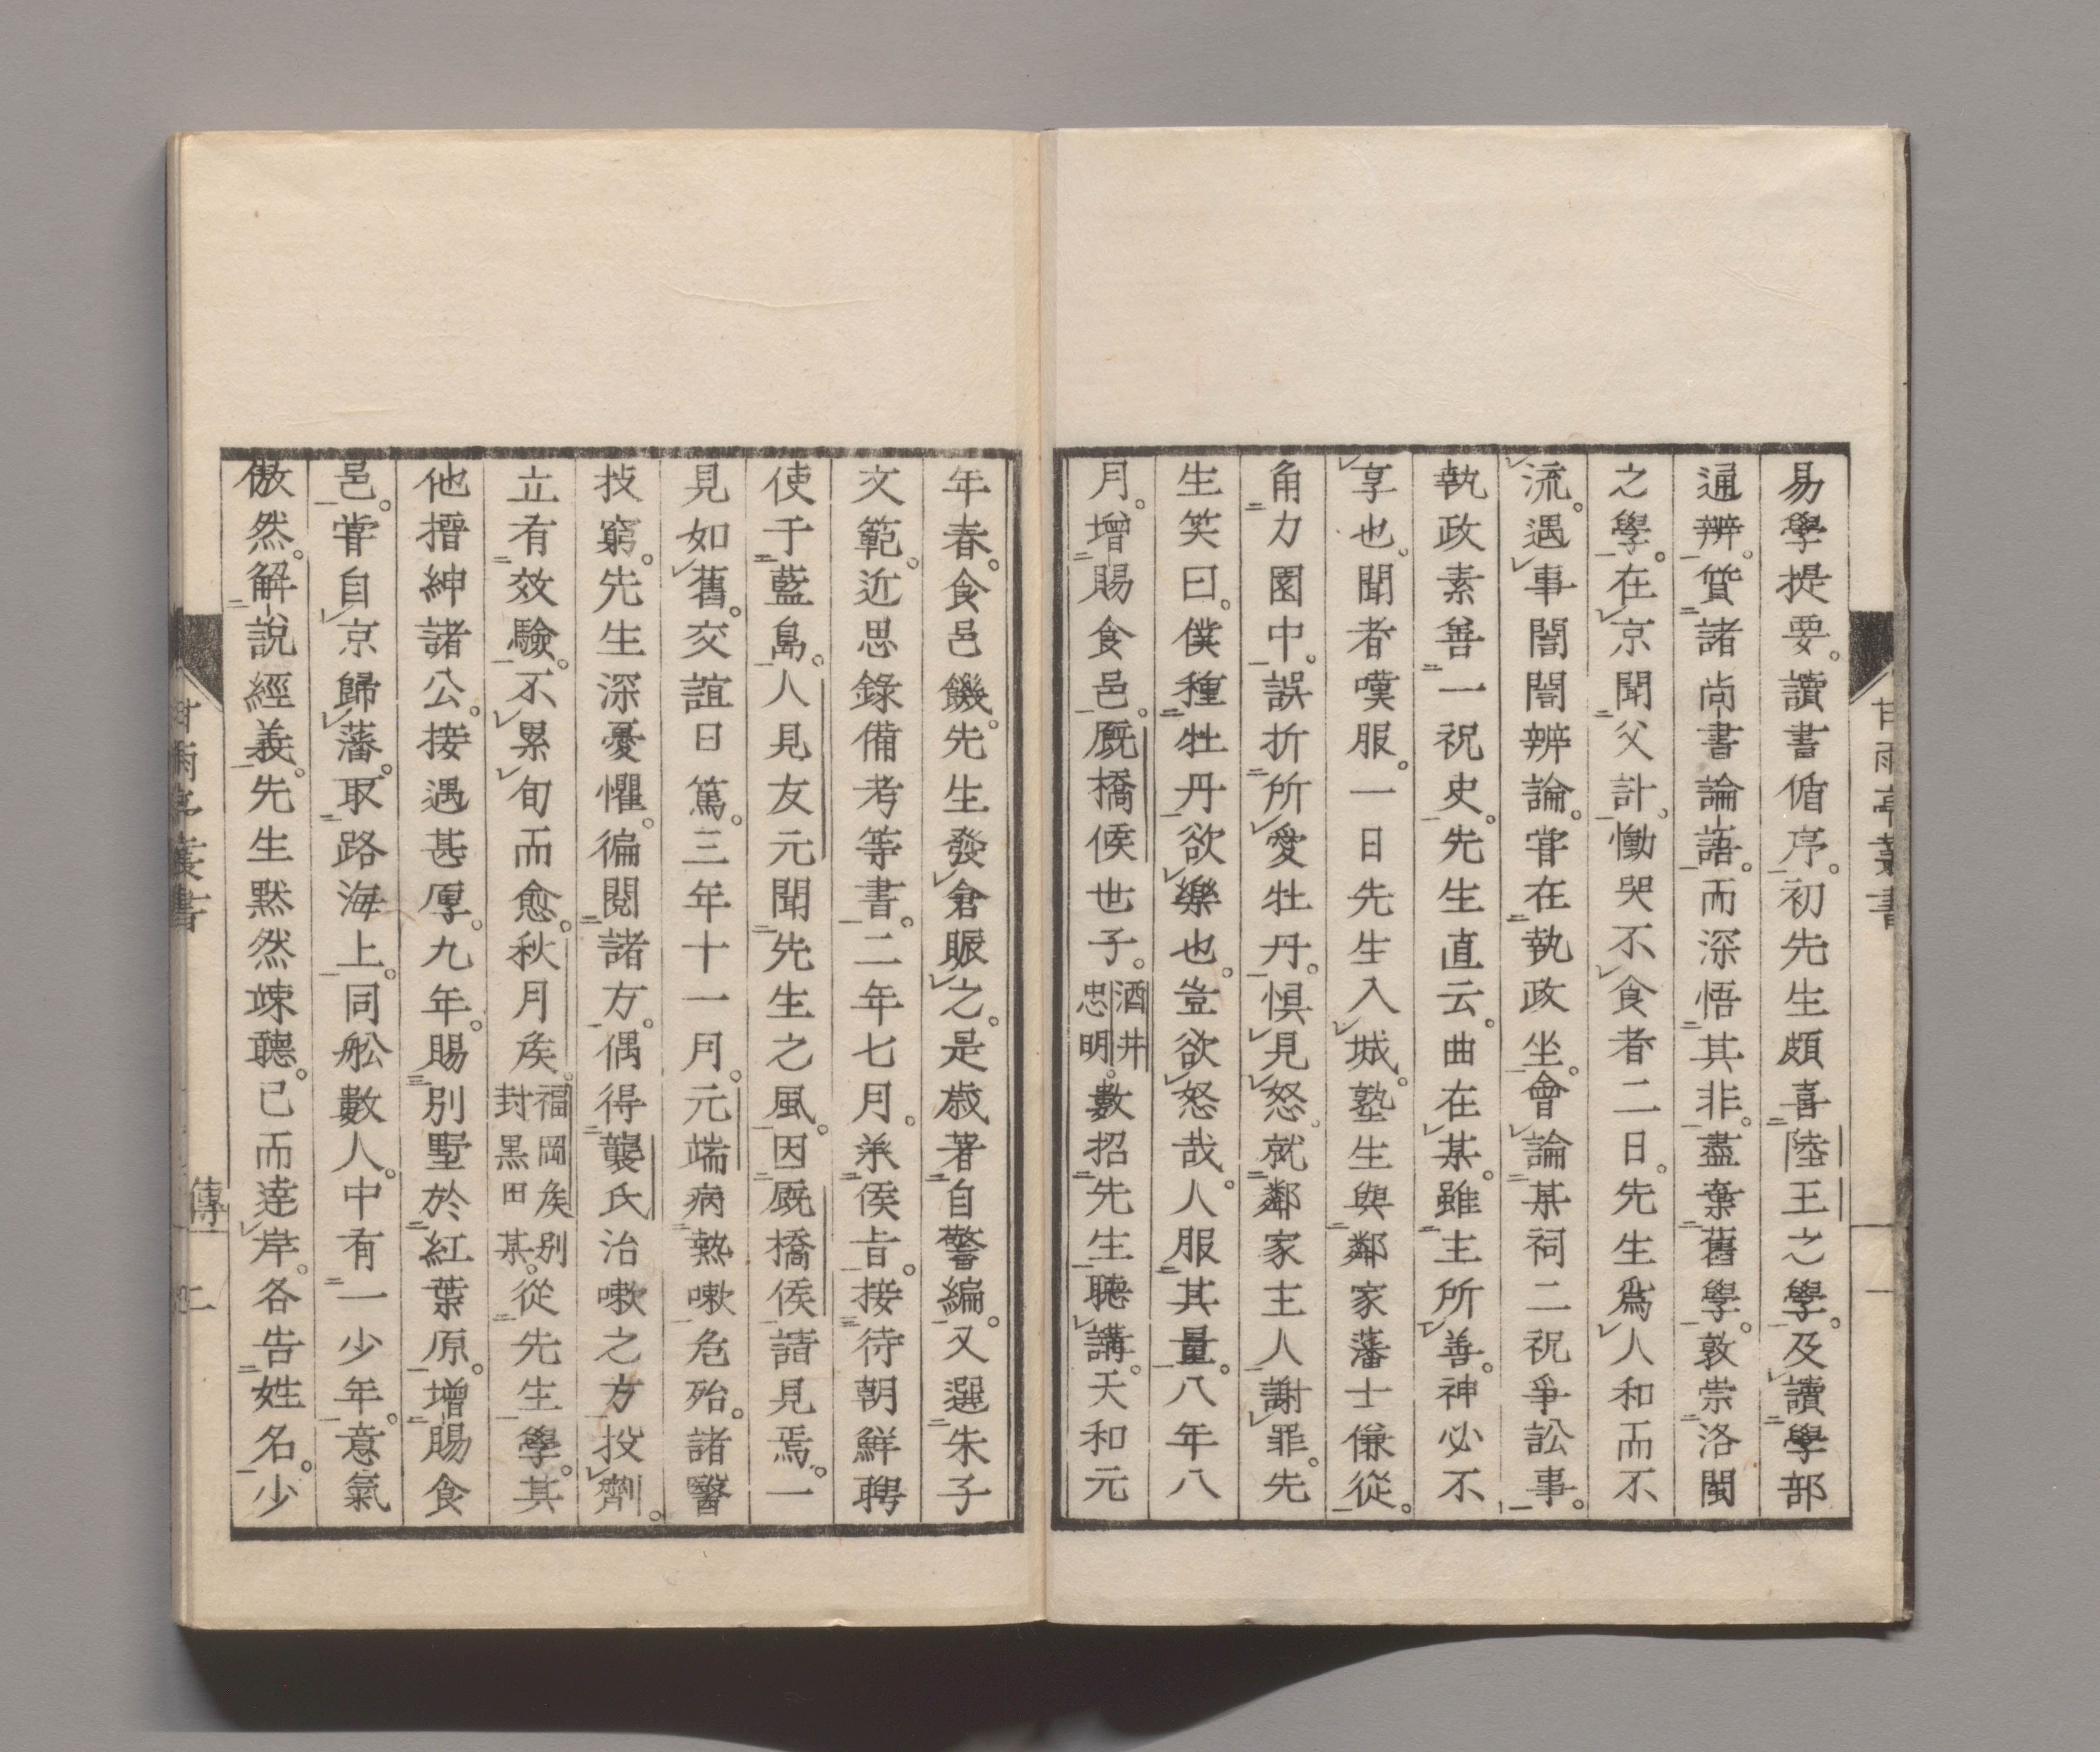 易學提要。讀書循序。初先生頗喜陸王之學。及讀學部
通辨。質諸尚書論語。而深悟其非。盡棄舊學。敦崇洛閩
之學。在京聞父訃。慟哭不食者二日。先生爲人和而不
流。遇事誾誾辨論。甞在執政坐。會論某祠二祝爭訟事。
執政素善一祝史。先生直云。曲在某。雖主所善。神必不
享也。聞者嘆服。一日先生入城。塾生與鄰家藩士傔從。
角力園中。誤折所愛牡丹。惧見怒。就鄰家主人謝罪。先
生笑曰。僕種牡丹欲樂也。豈欲怒哉。人服其量。八年八
月。增賜食邑。厩橋侯世子。酒井忠明。數招先生聽講。天和元
年春。食邑饑。先生發倉賑之。是歲著自警編。又選朱子
文範。近思錄備考等書。二年七月。承侯旨。接待朝鮮聘
使于藍島。人見友元聞先生之風。因厩橋侯請見焉。一
見如舊。交誼日篤。三年十一月。元端病熱嗽危殆。諸醫
技窮。先生深憂懼。徧閱諸方。偶得龔氏治嗽之方投劑。
立有效驗。不累旬而愈。秋月侯。福岡侯別封黒田某。從先生學。其
他搢紳諸公。接遇甚厚。九年。賜別墅於紅葉原。增賜食
邑。甞自京歸藩。取路海上。同舩數人。中有一少年。意氣
傲然。解説經義。先生黙然竦聽。已而達岸。各告姓名。少
甘雨亭叢書
傳
二